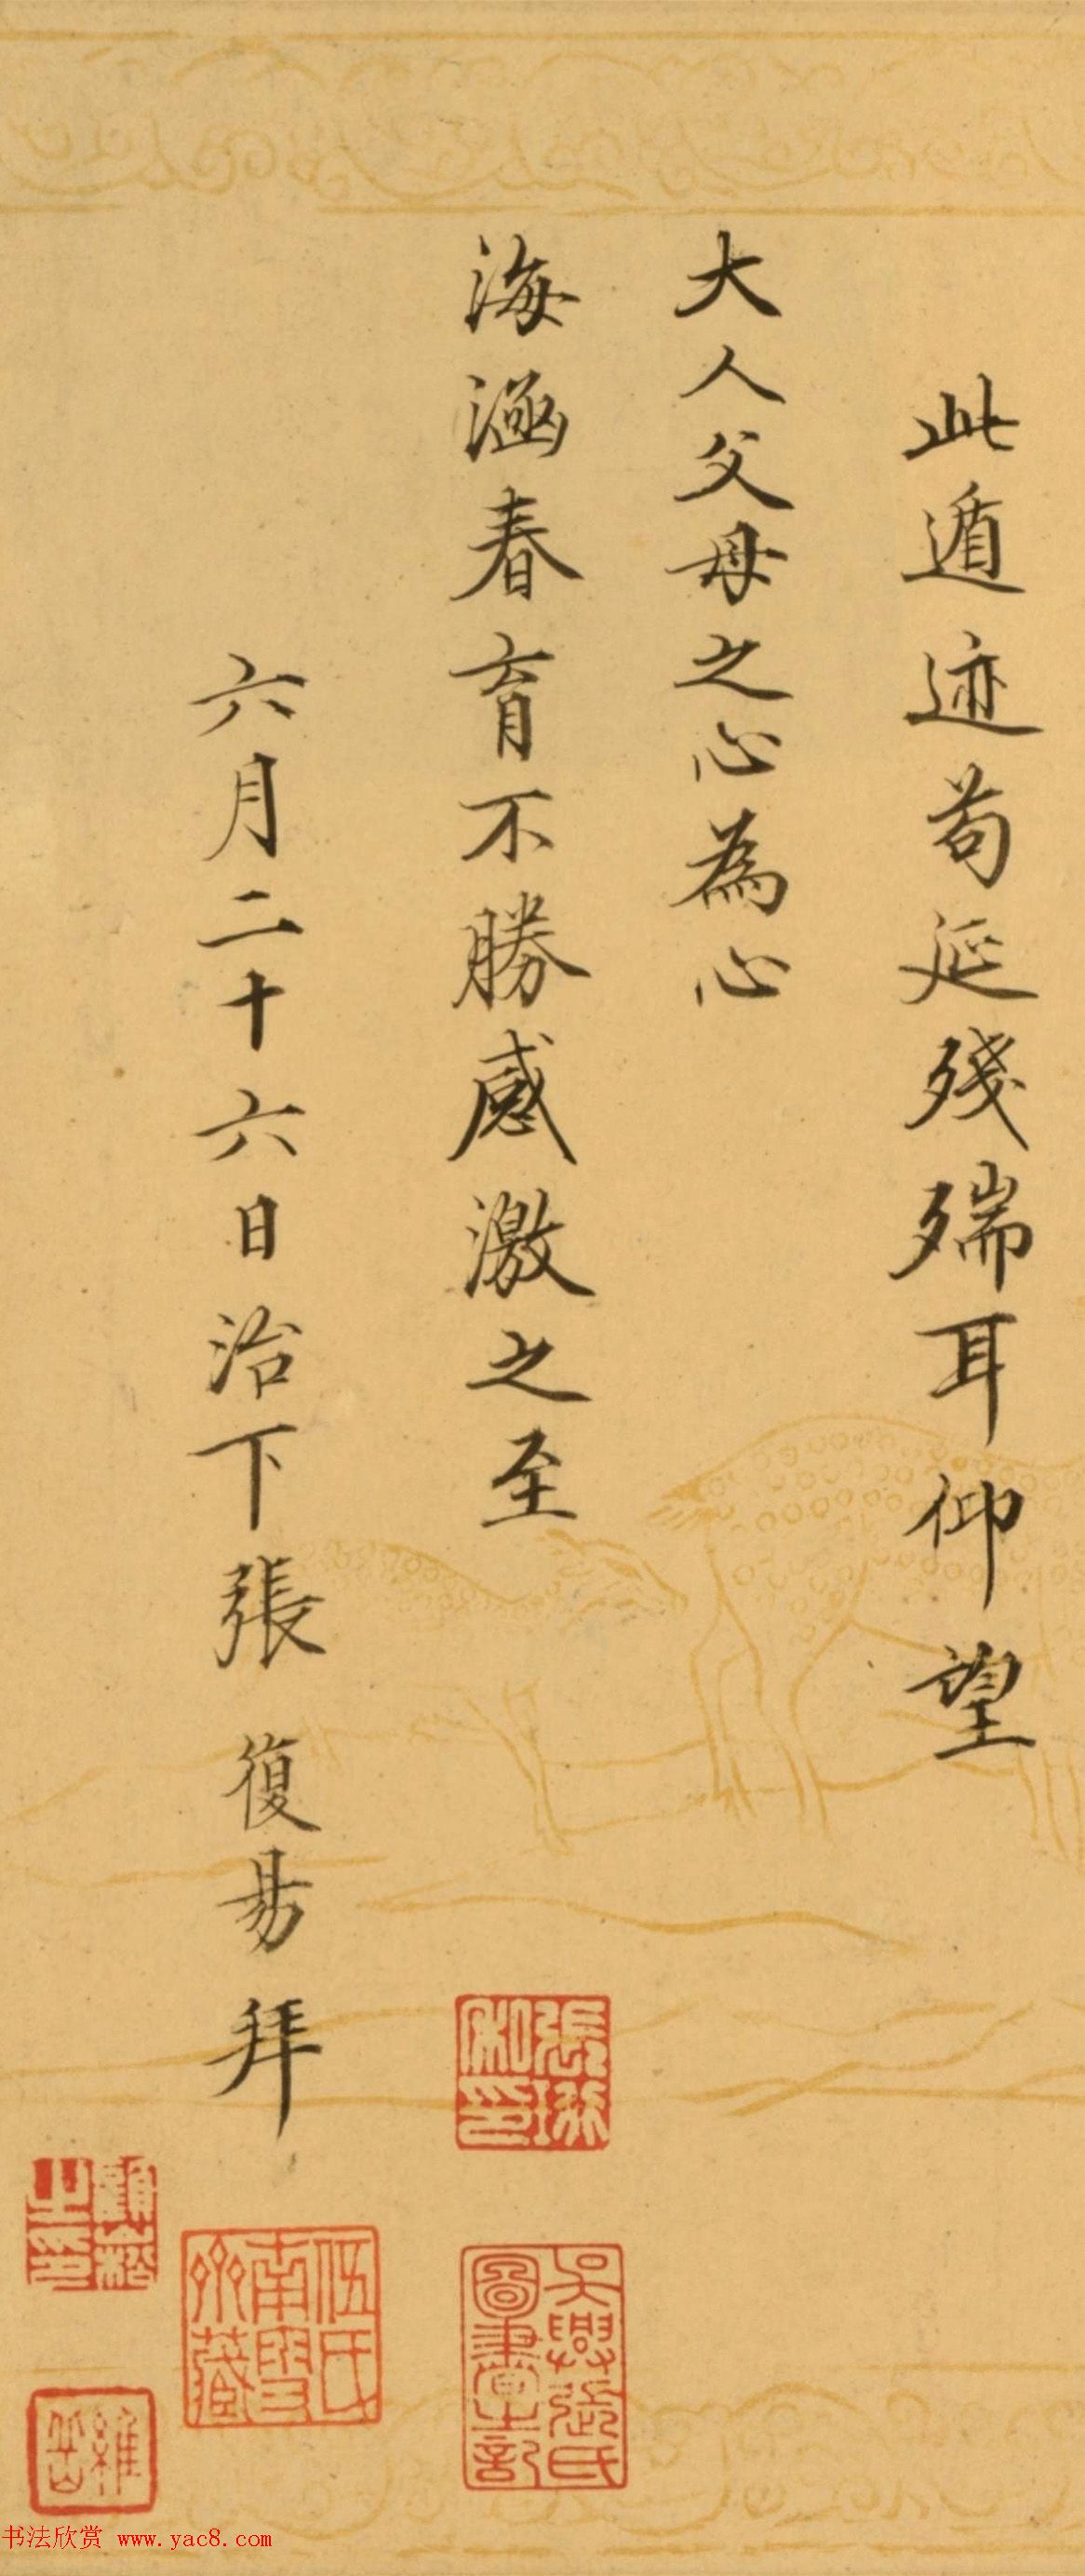 此遁迹苟延殘喘耳仰望
大人父母之心為心
海涵春育不勝感激之至
六月二十六日治下張復昜拜
張珩私印
吳興張氏圖書之記
伍氏南雪齋藏
顧崧之印
維岳
书法欣赏 www.yac8.com